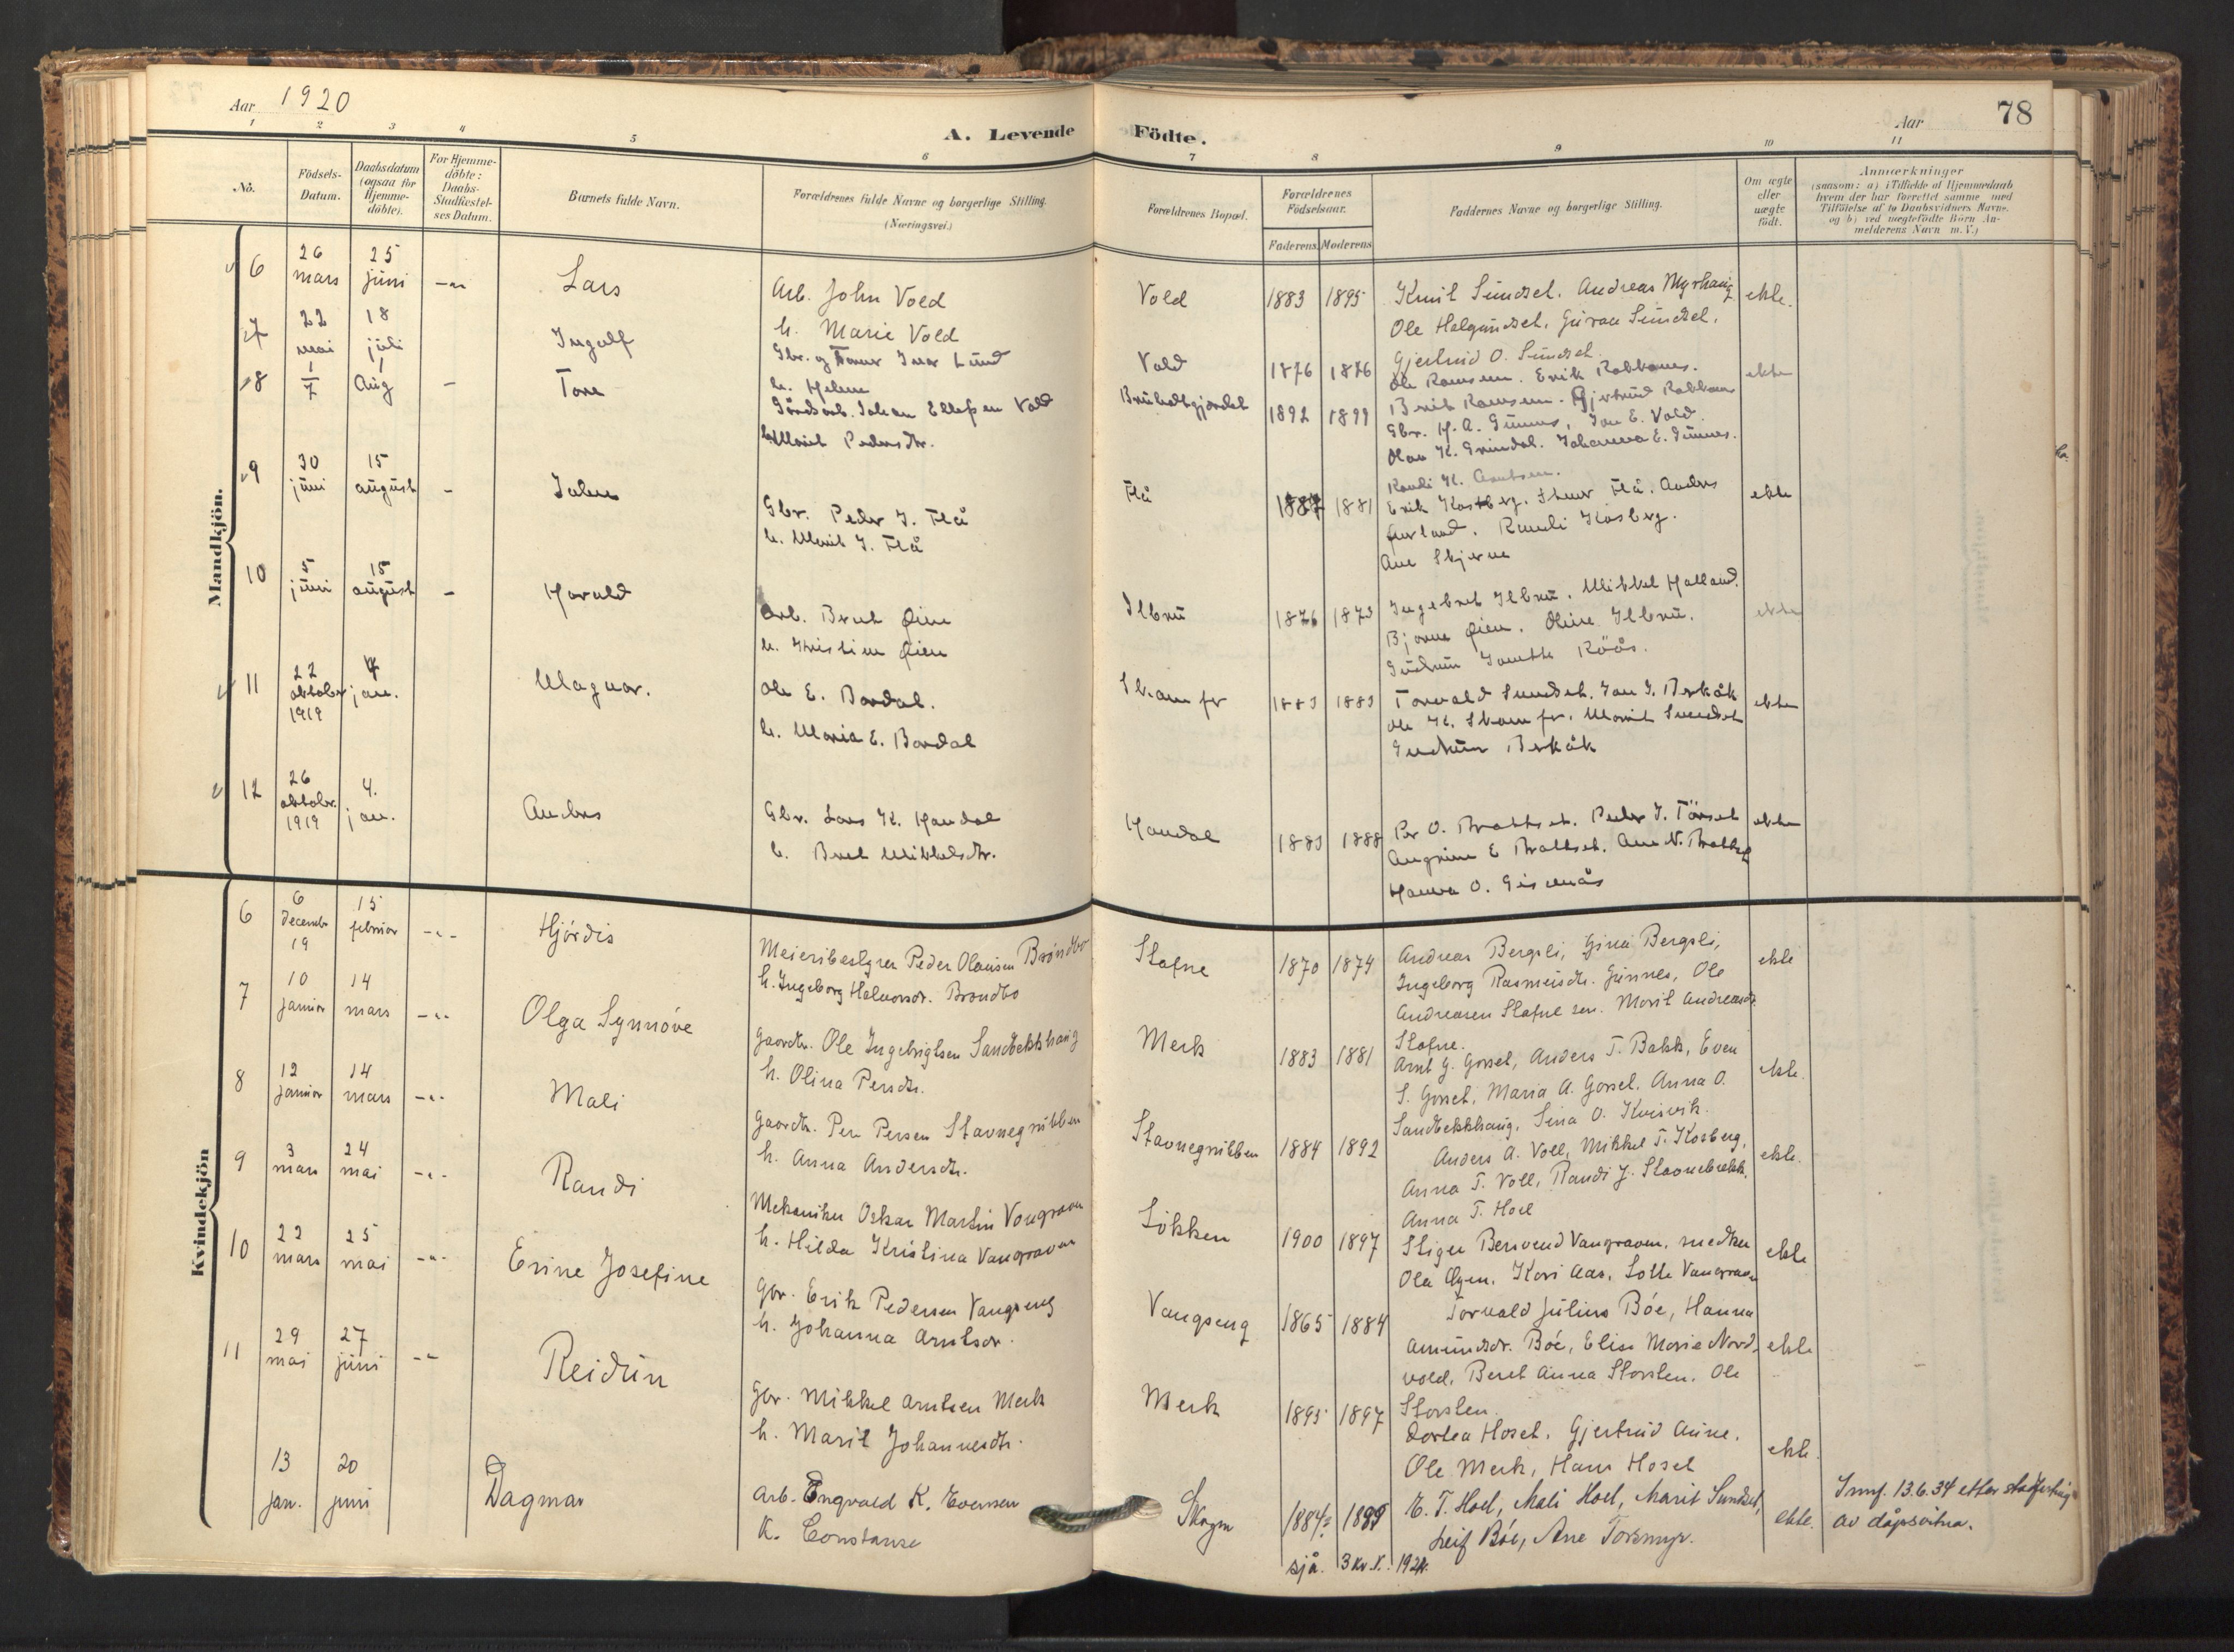 Aar 1920
A. Levende Födte.
Aar
78
1 2 3 4 5 6 7 8 9 10 11
No.
Födsels-Datum.
Daabsdatum (ogsaa for Hjemme-döbte).
For Hjemme-döbte: Daabs-Stadfæstel-ses Datum.
Barnets fulde Navn.
Forældrenes fulde Navne og borgerlige Stilling.
(Næringsvei.)
Forældrenes Bopæl.
Forældrenes Födselsaar.
Faderens Moderens
Faddernes Navne og borgerlige Stilling.
Om ægte eller uægte födt.
Anmærkninger
(saasom: a) i Tilfælde af Hjemmedaab
hvem der har forrettet samme med
Tilföielse af to Daabsvidners Navne.
og b) ved uægtefödte Börn An-
melderens Navn m. V.)
Mandkjön.
6 26 mars 25 juni Lars
Arb. John Vold
h. Marie Vold
Vold 1883 1895
Andreas Myrhaug
ekte.
7 22 mai 18 juli Ingolf
Gbr. og Lund
h. Helene
Vold 1876 1876
Gjertrud O. Sundset.
Ole Ramsem. Erik
ekte
8 1/7 1 Aug - Tore
Johan Ellefsen Vold
h. Marit Pedersdtr.
1892 1899
Gbr. H. A. Gunnes, Jon E. Vold.
Olav K. Grindal. Johanna E. Gunnes.
Randi K.
9 30 juni 15 august - John
Gbr. Peder J. Flå
h. Marit J. Flå
Flå 1887 1881
Erik Kosberg. Flå. Anders
Randi Kosberg.
Ane Skjerve
ekte
10 5 juni 15 august - Harald
Arb. Berit Öien
h. Kristine Öien
Ilbru 1876 1873
Ingebret Ilbru. Mikkel Halland.
Bjarne Öien. Oline Ilbru.
Gudrun Röös.
ekte
11 22 oktober 1919 4 jan. Magnar.
Ole E. Bardal.
h. Maria E. Bardal
1883 1883
Torvald Sundset. Jon J. Berkåk
Ole K. Marit Sundset
Gudrun Berkåk
ekte
12 26 oktober. 1919 4. jan. Anders
Gbr. Lars K. Haudal
h. Beret Mikkelsdtr.
Haudal 1883 1888
Per O. Brattset. Peder J. Törset
Angrim E Brattset. Ane N. Brattset
Hanna O. Gisnås
ekte
Kvindekjön
6 6 decembr 19 15 februar -"- Hjördis
Meieribestyrer Peder Olausen Bröndbo
h. Ingeborg Halvorsdr. Bröndbo
Stafne 1870 1874
Andreas Bergsli, Gina Bergsli,
Ingeborg Rasmusdtr. Gunnes, Ole
Andreasen Stafne sen. Marit Andreasdr
Stafne.
ekte
7 10 januar 14 mars -"- Olga Synnöve
Gaardbr. Ole Ingebrigtsen Sandbekkhaug
h. Olina Persdtr.
Merk 1883 1881
Arnt G. Gorset, Anders T. Bakk, Even
S. Gorset, Maria A. Gorset. Anna O.
Sandbekkhaug, Sina O. Kvisvik.
ekte.
8 12 januar 14 mars -"- Mali
Gaardbr. Per Persen Stavnegrubben
h. Anna Andersdtr.
Stavnegrubben 1884 1892
Anders A. Voll, Mikkel T. Kosberg,
Anna T. Voll, Randi J. Stavnebrekk,
Anna T. Hoel
ekte.
9 3 mars 24 mai -"- Randi
Mekaniker Oskar Martin Vongraven
h. Hilda Kristina Vangraven
Lökken 1900 1897
Stiger Bernvend Vangraven, snedker
Ola Öyen. Kari Aas, Lotte Vangraven
ekte
10 22 mars 25 mai -"- Erine Josefine
Gbr. Erik Pedersen Vangseng
h. Johanna Arntsdr.
Vangseng 1865 1884
Torvald Julius Böe, Hanna
Amundsdr. Böe, Elise Marie Nord-
vold, Beret Anna Storslen, Ole
Storslen.
ekte
11 29 mai 27 juni -"- Reidun
Gbr. Mikkel Arntsen Merk
h. Marit Johannesdtr.
Merk 1895 1897
Dortea Hoset. Gjertrud Aune.
Ole Merk, Hans Hoset
ekte.
13 jan. 20 juni Dagmar
Arb. Engvald K. Evensen
K. Constanse
Skogm 1884? 1889
E. T. Hoel, Mali Hoel, Marit Sundset,
Leif Böe, Ane Torsmyr.
ekte.
Innf. 13.6.34 etter stadfesting
av dåpsvitna.
sjå. 3 kv. N. 1921.